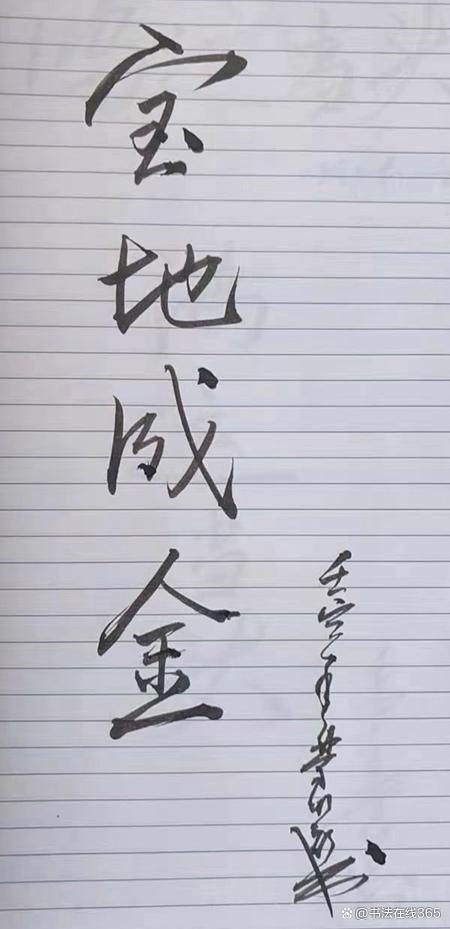 宝地成金
壬寅年
@书法在线365